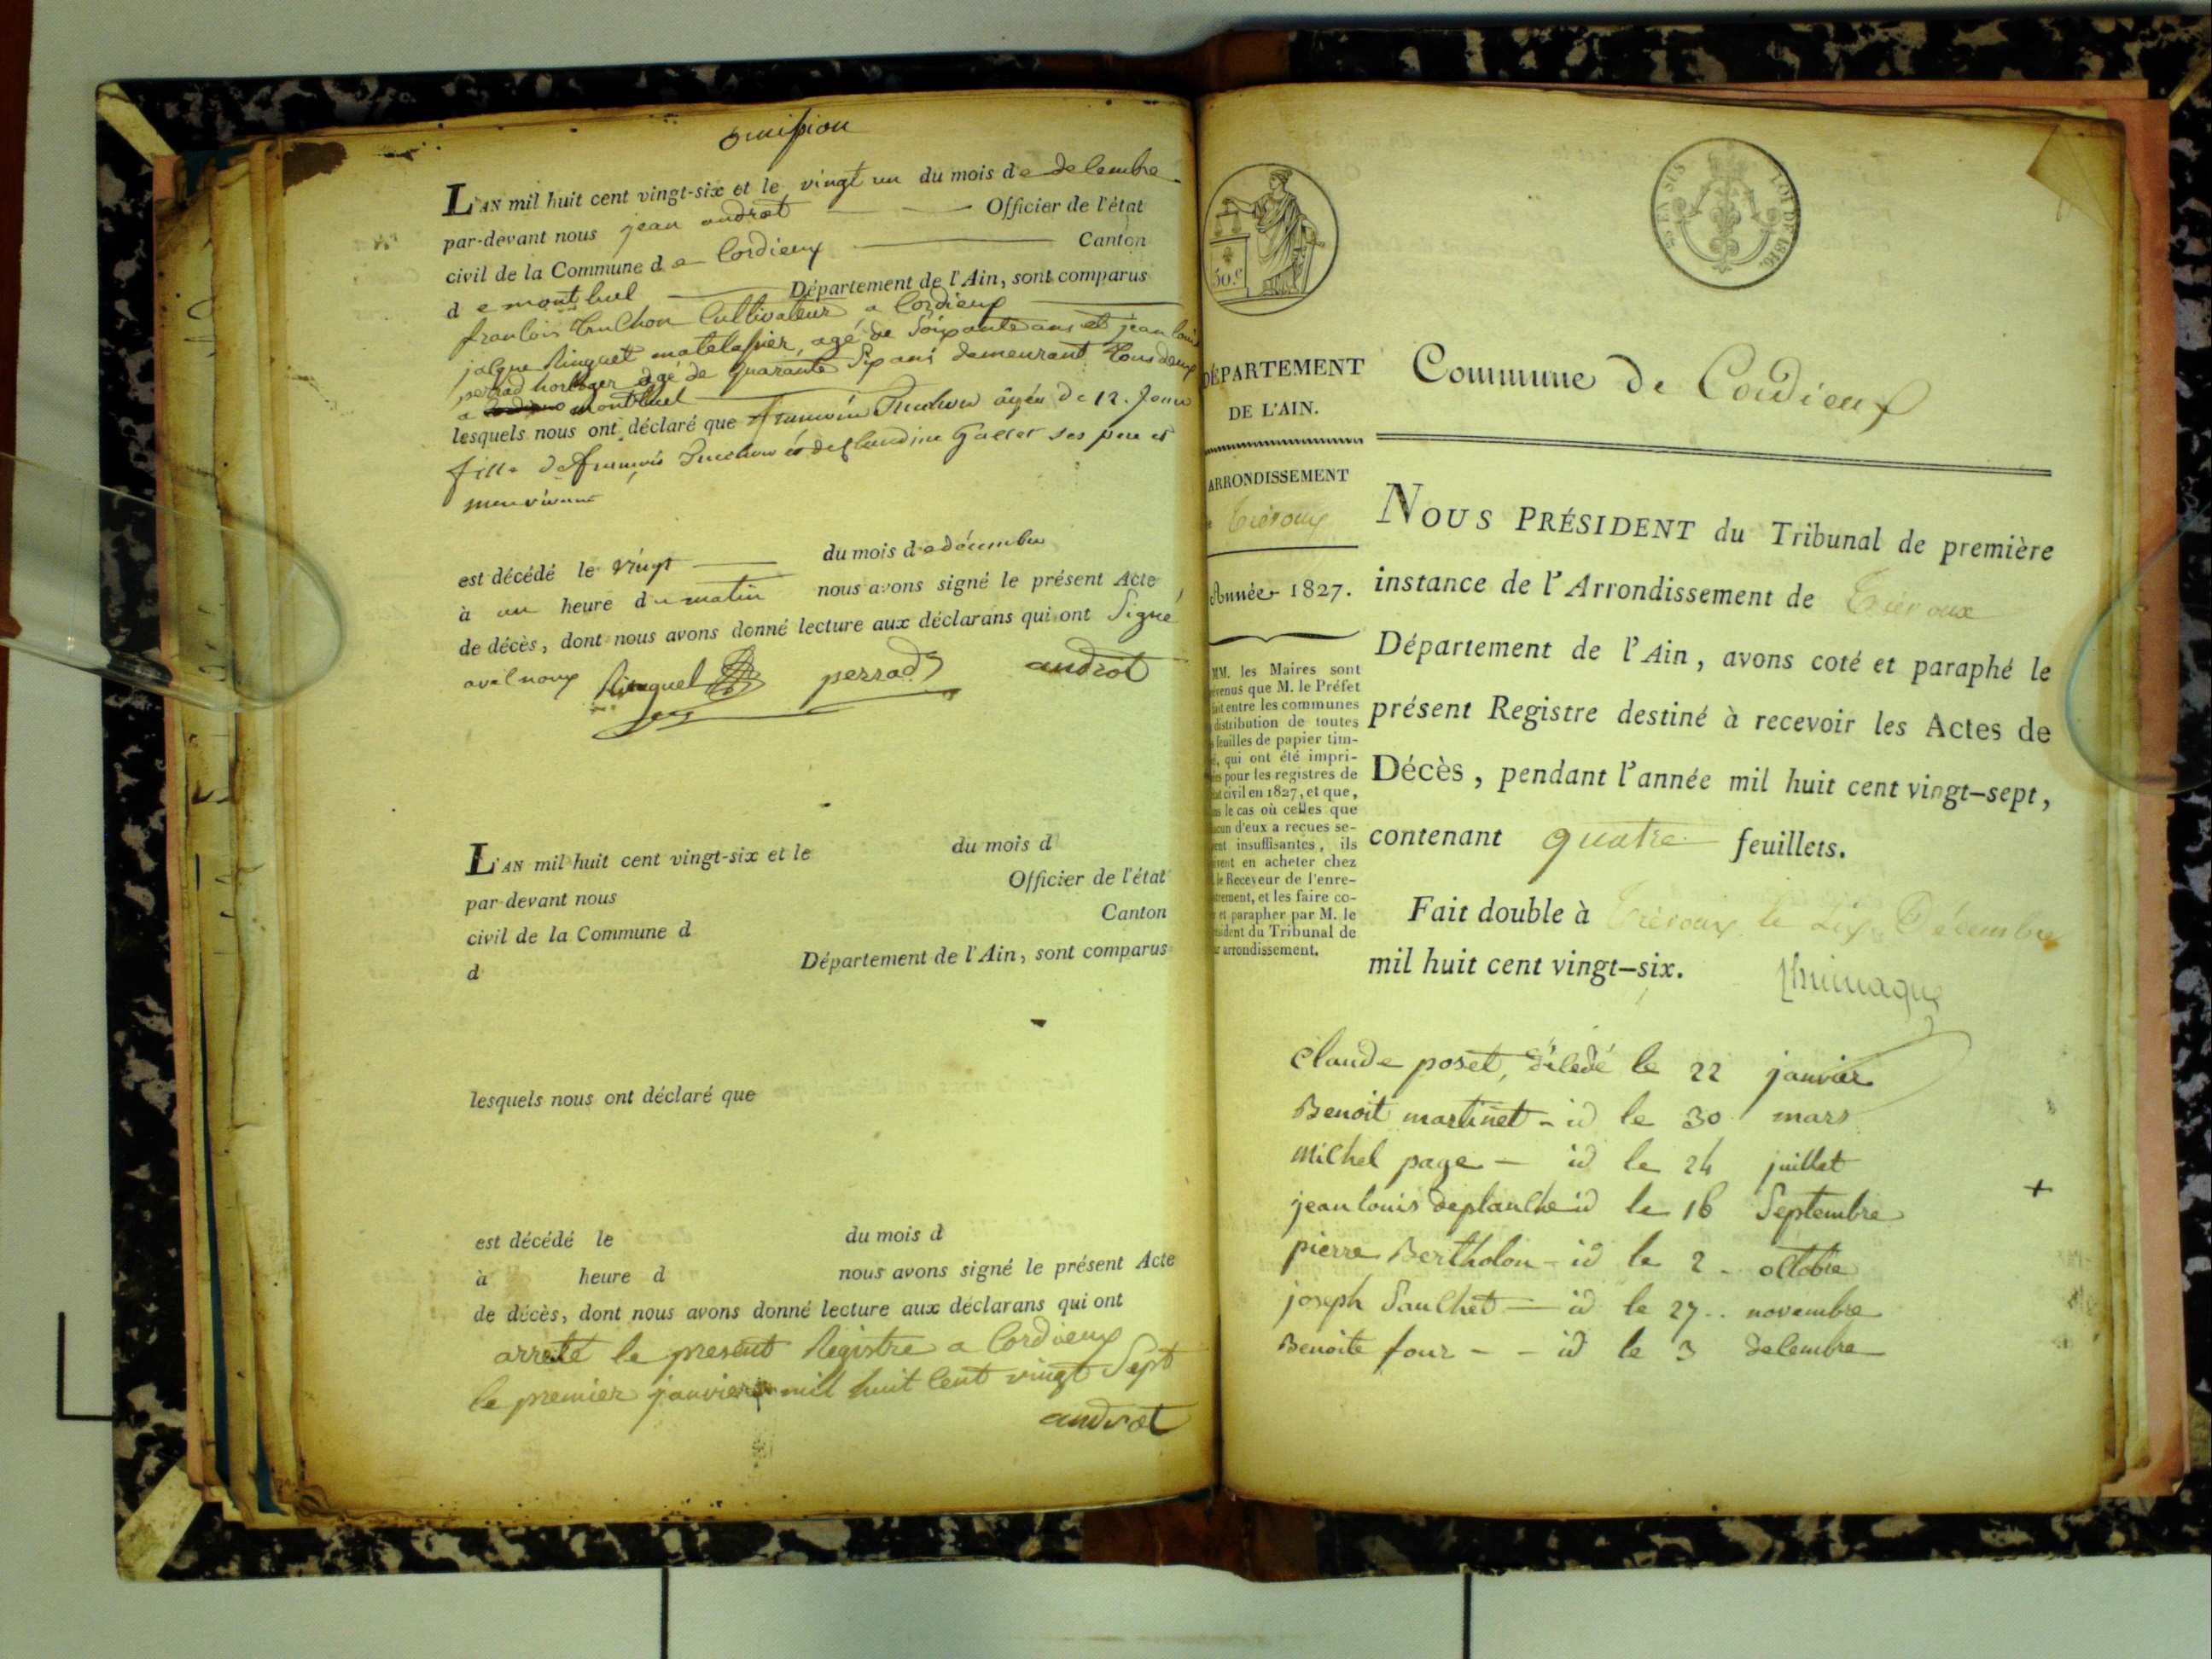 omission
L'AN mil huit cent vingt-six et le vingt un du mois de decembre
par-devant nous jean androt Officier de l'état
civil de la Commune de Cordieux Canton
de montluel Département de l'Ain, sont comparus
francois truchon Cultivateur a Cordieux
jacque Ringuet matelassier, agé de Soixante ans et jean louis
perrad horloger agé de quarante Six ans demeurant tous deux
a montluel
lesquels nous ont déclaré que truchon âgée de 12. Jours
fille de françois truchon et de Claudine ses pere et
mere vivant
est décédé le vingt du mois de décembre
à un heure du matin nous avons signé le présent Acte
de décès, dont nous avons donné lecture aux déclarans qui ont Signé
avec nous Ringuet perrad androt
L'AN mil huit cent vingt-six et le du mois d
par-devant nous Officier de l'état
civil de la Commune d Canton
d Département de l'Ain, sont comparus
lesquels nous ont déclaré que
est décédé le du mois d
à heure d nous avons signé le présent Acte
de décès, dont nous avons donné lecture aux déclarans qui ont
arreté le present Registre a Cordieux
le premier janvier mil huit Cent vingt Sept
androt
50 EN SUS LOI DE 1816.
50.c
DÉPARTEMENT
DE L'AIN.
ARRONDISSEMENT
Trévoux
Année 1827.
MM. les Maires sont
prévenus que M. le Préfet
fait entre les communes
distribution de toutes
feuilles de papier tim-
qui ont été impri-
pour les registres de
civil en 1827, et que,
le cas où celles que
d'eux a reçues se-
insuffisantes, ils
en acheter chez
le Receveur de l'enre-
et les faire co-
et parapher par M. le
du Tribunal de
arrondissement.
Commune de Cordieux
NOUS PRÉSIDENT du Tribunal de première
instance de l'Arrondissement de Trévoux
Département de l'Ain, avons coté et paraphé le
présent Registre destiné à recevoir les Actes de
Décès, pendant l'année mil huit cent vingt-sept,
contenant quatre feuillets.
Fait double à Trévoux le dix Décembre
mil huit cent vingt-six.
Claude poset, décédé le 22 janvier
Benoit martinet - id le 30 mars
Michel page - id le 24 juillet
jean louis deplanche id le 16 Septembre +
pierre Bertholon - id le 2 - octobre
joseph Sauchet - id le 27 .. novembre
Benoite four - - id le 3 decembre